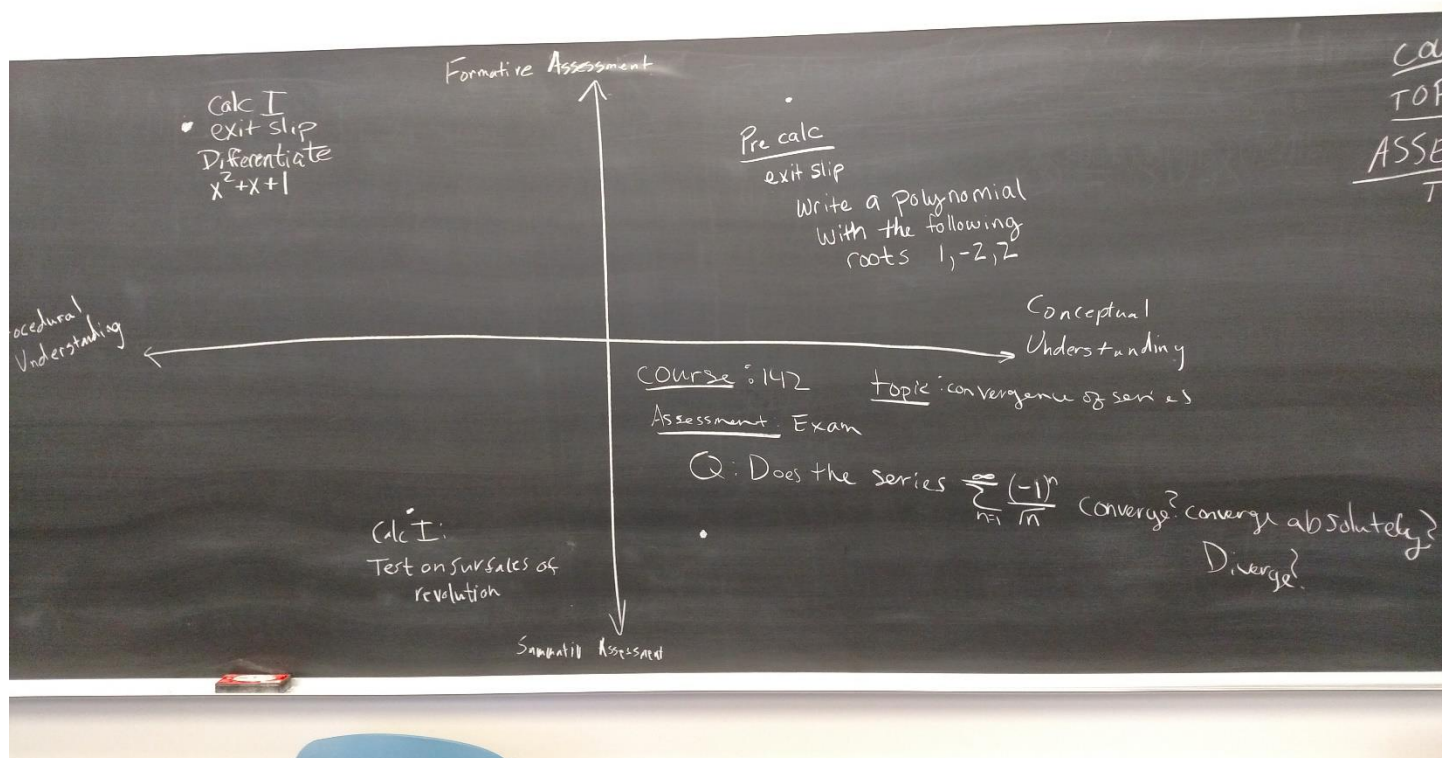 Formative Assessment
Calc I
exit slip
Differentiate
x²+x+1
Pre calc
exit slip
Write a polynomial
with the following
roots 1,-2,2
CO
TOP
ASSE
T
ocedural
Understanding
Conceptual
Understanding
Course: 142 topic: convergence of series
Assessment: Exam
Q: Does the series ∑_{n=1}^{∞} (-1)^n/√n converge? converge absolutely?
Diverge?
Calc I:
Test on surfaces of
revolution
Summativ Assessment